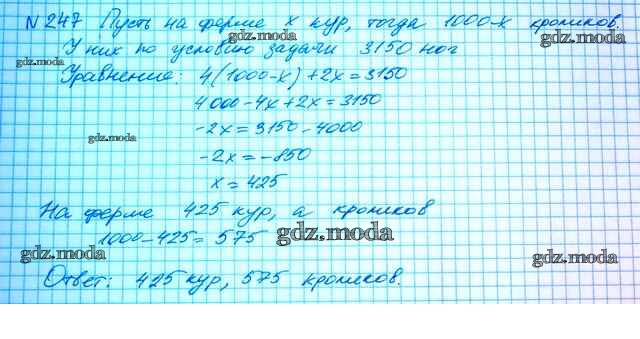 № 247 Пусть на ферме x кур, тогда 1000-x кроликов.
gdz.moda
gdz.moda
У них по условию задачи 3150 ног
gdz.moda
Уравнение: 4(1000-x)+2x=3150
4000-4x+2x=3150
-2x=3150-4000
gdz.moda
-2x=-850
x=425
На ферме 425 кур, а кроликов
1000-425=575
gdz.moda
gdz.moda
gdz.moda
Ответ: 425 кур, 575 кроликов.